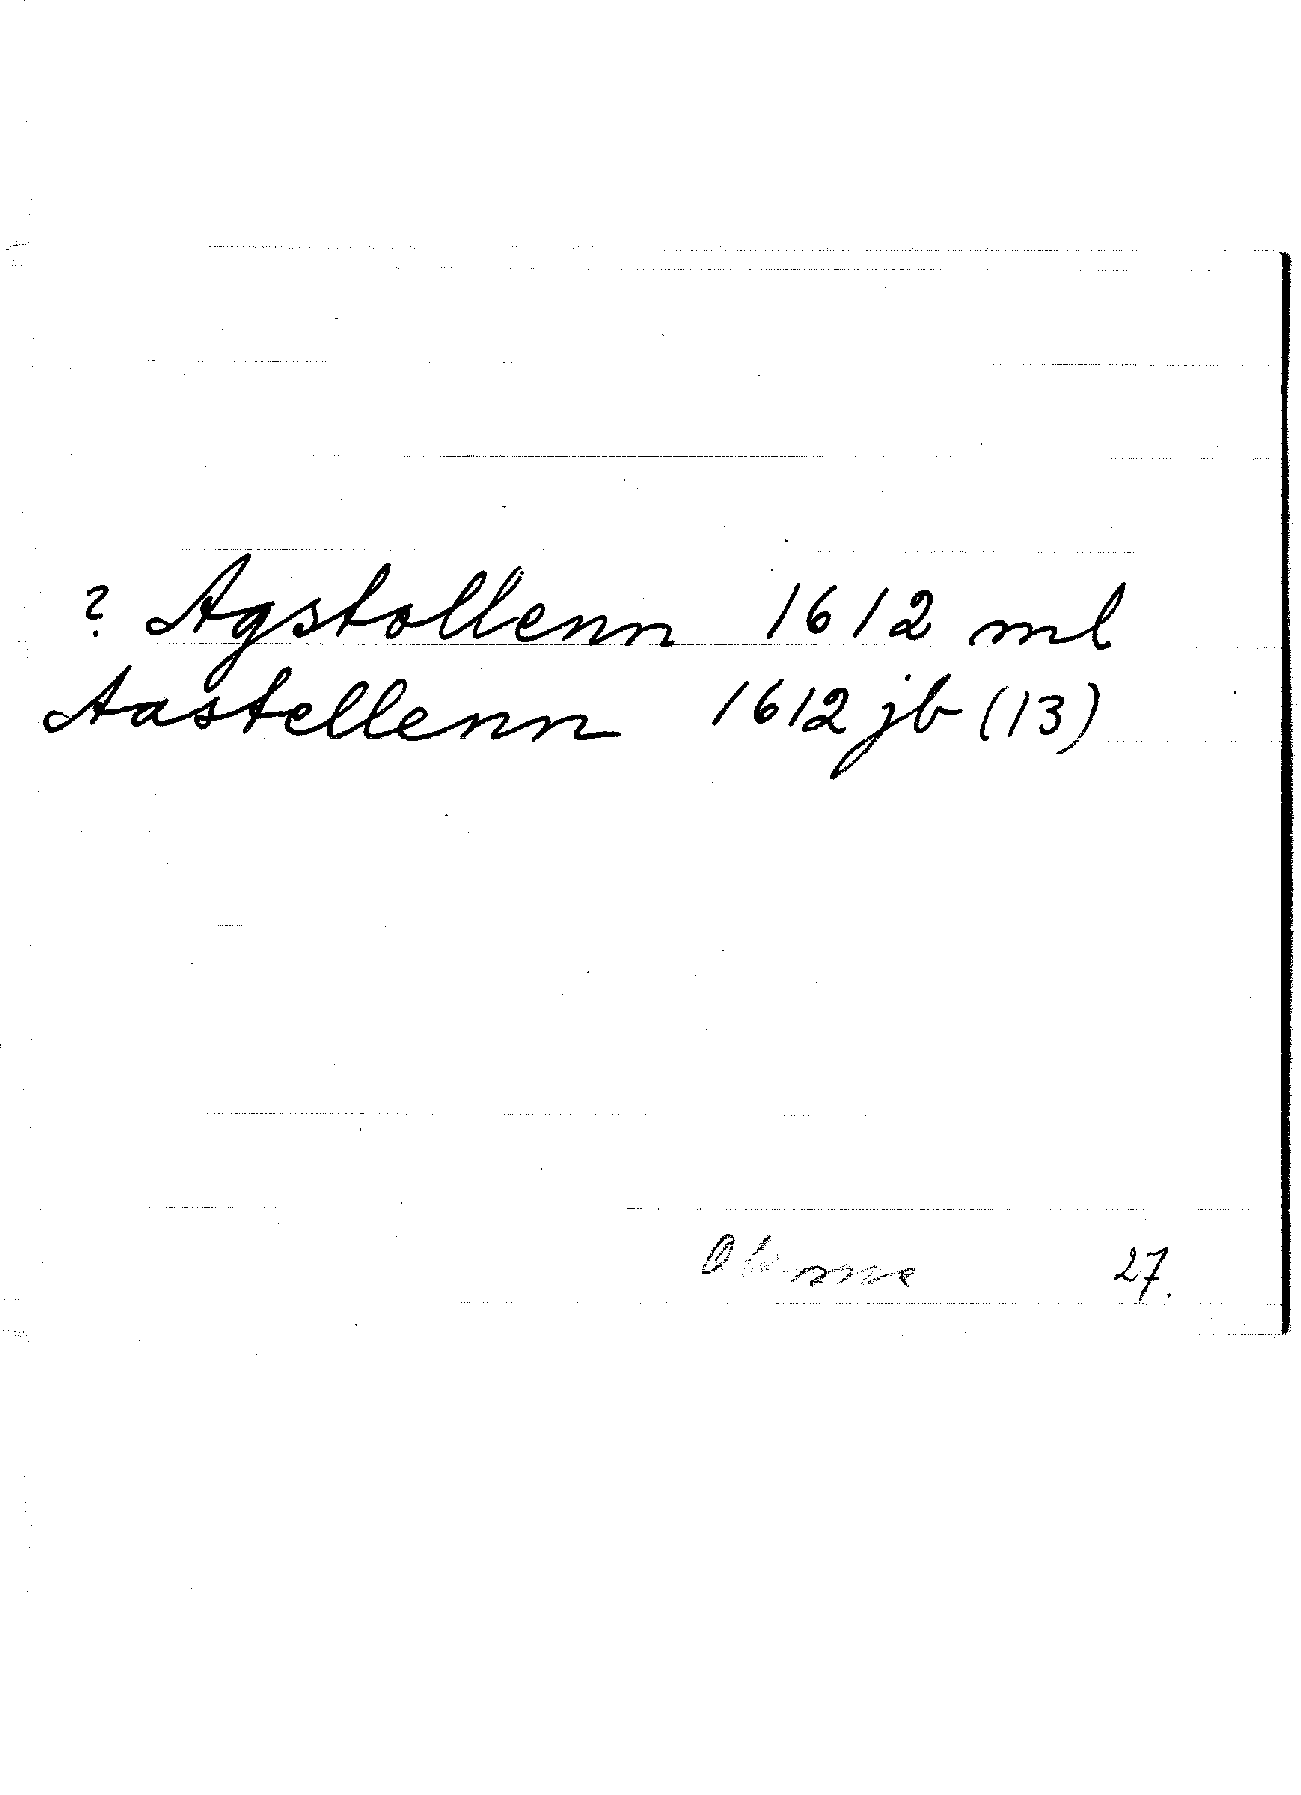 ? Agstollenn 1612 ml
Aastellenn 1612 jb (13)
27.